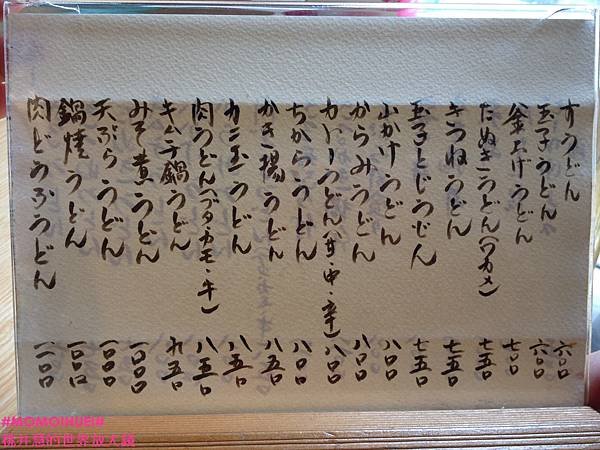 すうどん 六〇〇
玉子うどん 六〇〇
釜上げうどん 七〇〇
たぬきうどん(ワカメ) 七五〇
きつねうどん 七五〇
玉子とじうどん 七五〇
山かけうどん 八〇〇
からみうどん 八〇〇
カレーうどん(甘・中・辛) 八〇〇
ちからうどん 八〇〇
かき揚うどん 八五〇
カニ玉うどん 八五〇
肉うどん(ブタ・カモ・牛) 八五〇
キムチ鍋うどん 九五〇
みそ煮うどん 一〇〇〇
天ぷらうどん 一〇〇〇
鍋焼うどん 一一〇〇
肉どうふうどん 一一〇〇
#MOMOIHUEI#
的世界放大鏡